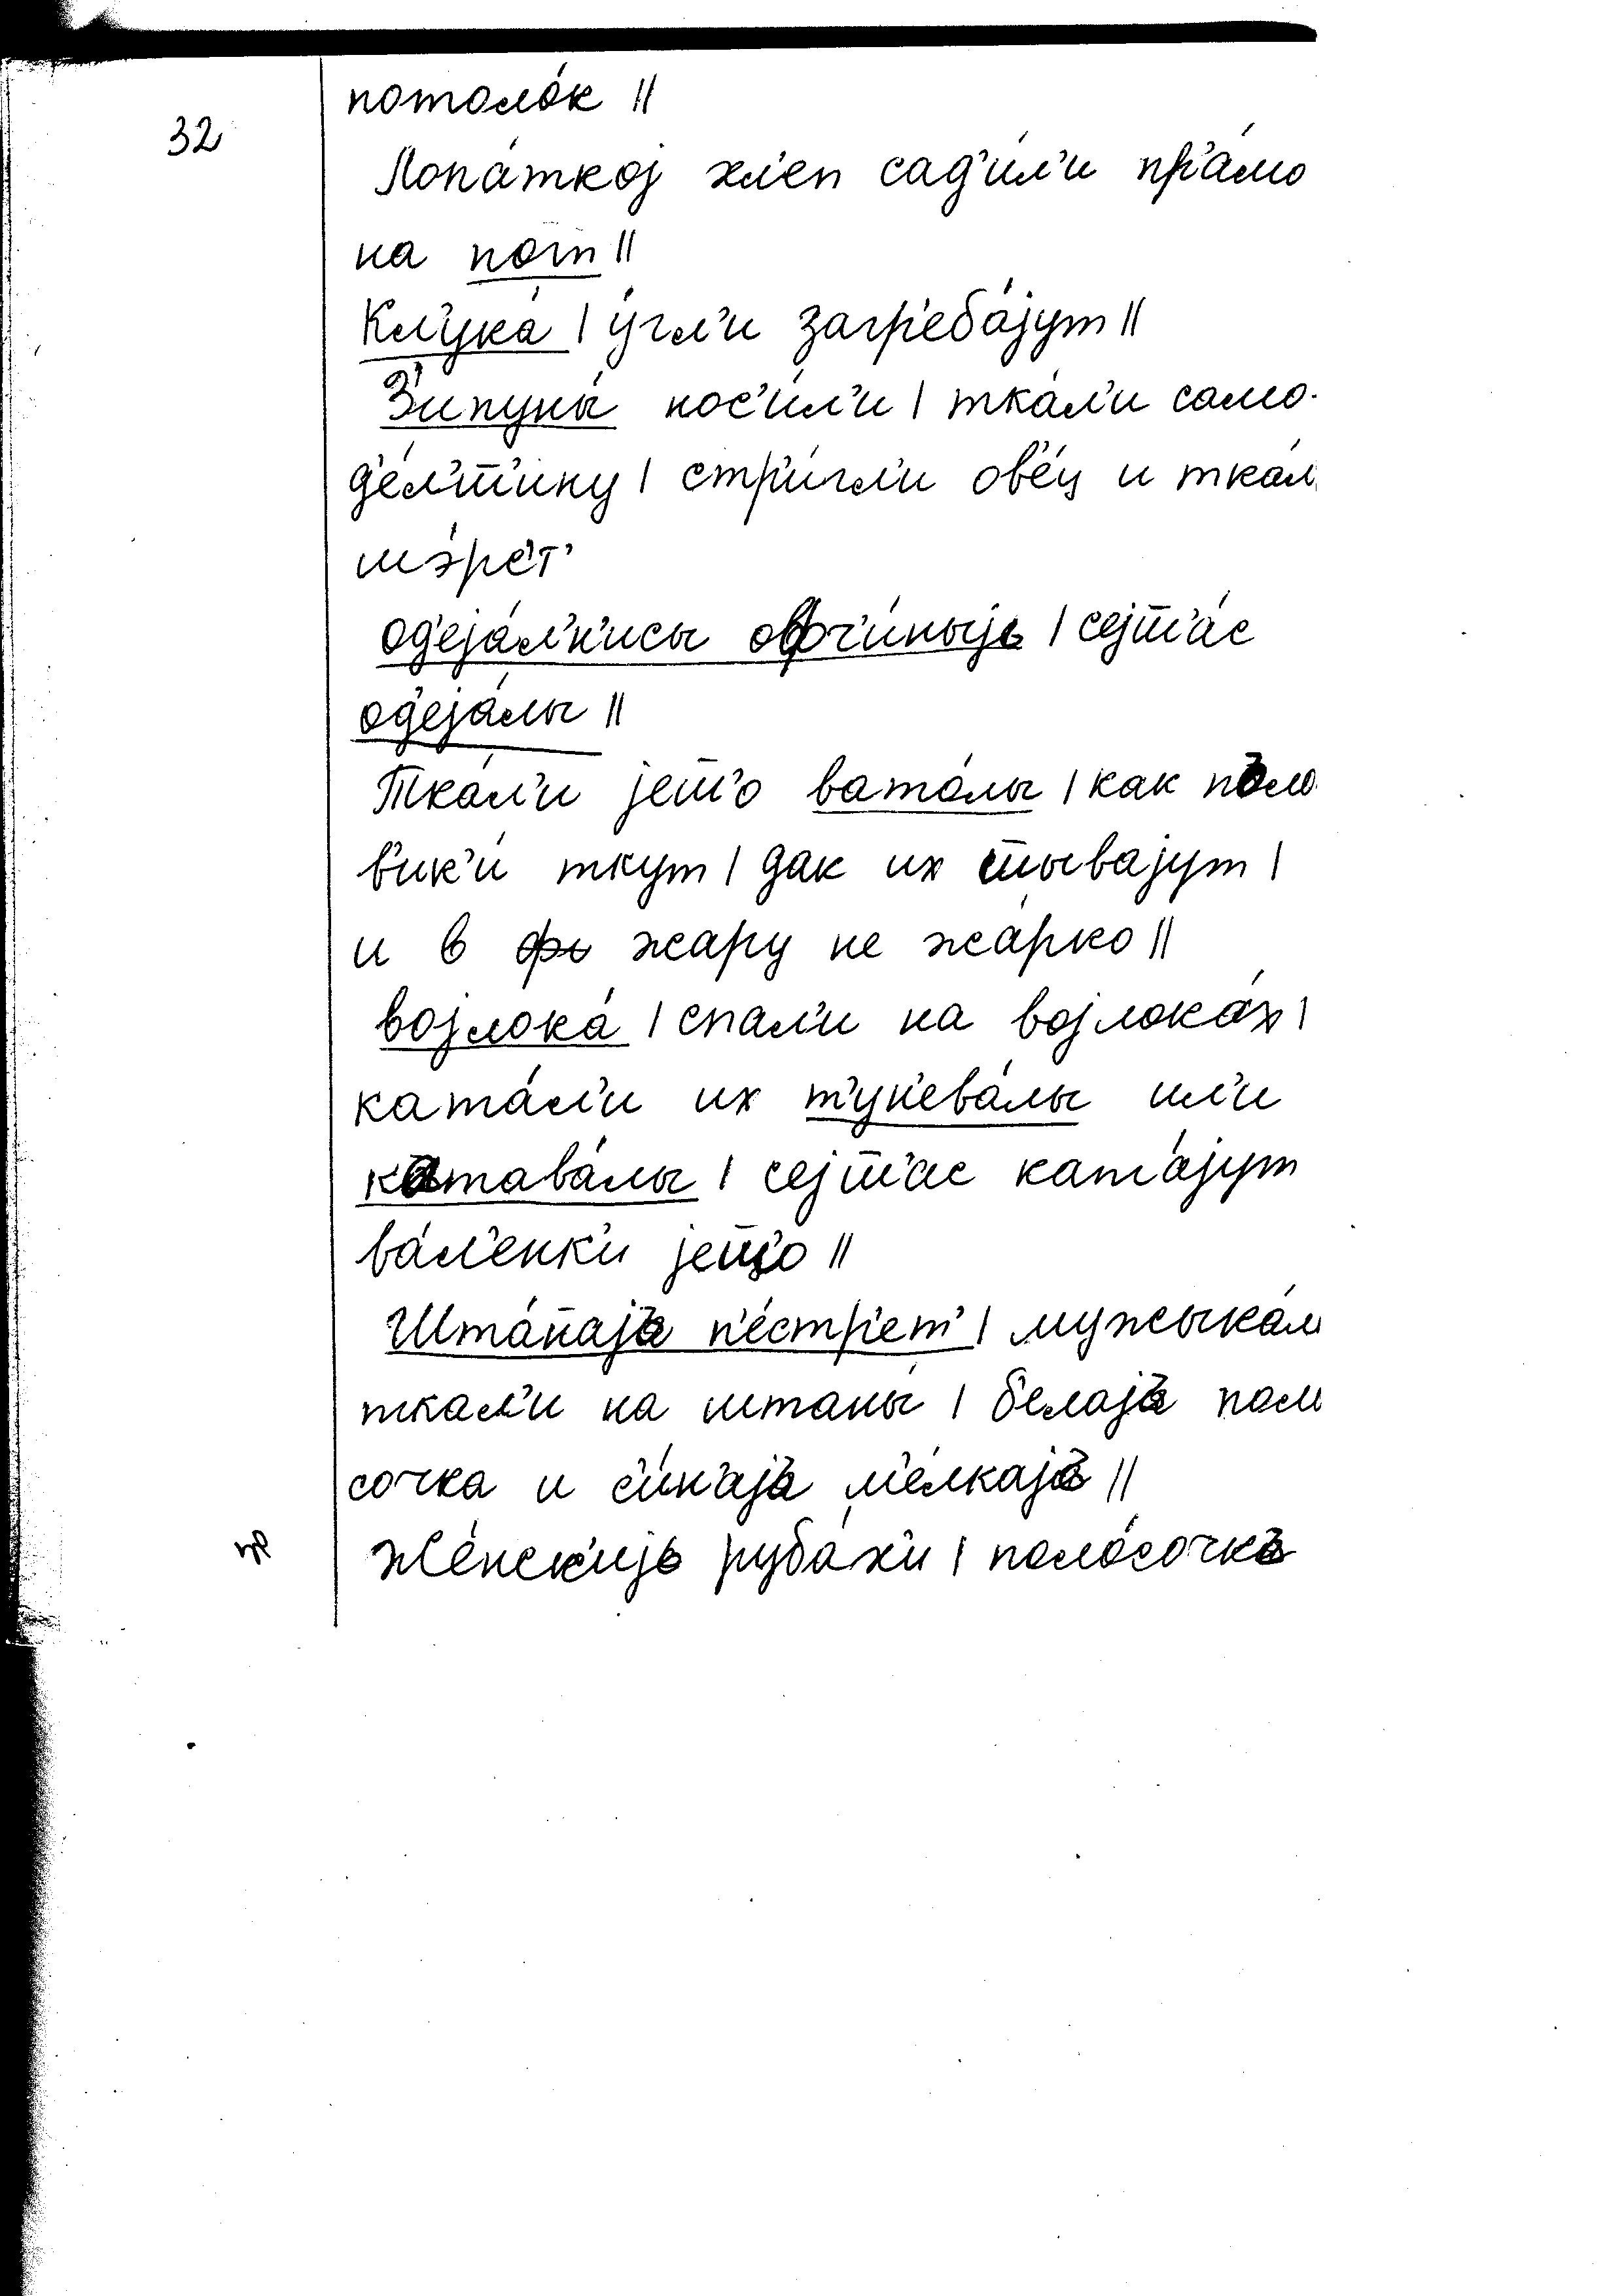 32
потоло́к ||
Лопа́ткоj хл'еп сад'и́л'и пр'а́мо
на пот ||
Кл'ука́ | у́гл'и загр'еба́jут ||
З'ипуны́ нос'и́л'и | тка́л'и само-
д'е́л'т'ину | стр'и́гл'и ов'е́ц и ткал
шэрс'т'
од'еjа́л'н'исы офч'и́ныjь | сеjт'а́с
од'еjа́лы ||
Тка́л'и jeш'о вато́лы | как поло
в'ик'и́ ткут | дак их сшывajут |
и в жару не жа́рко ||
воjлока́ | спал'и на воjлока́х |
ката́л'и их т'ун'ева́лы ил'и
катава́лы | сеjт'ас ката́jут
ва́л'енк'и jeш'о ||
Шта́наjъ п'е́стр'ет' | мужыка́м
ткал'и на штаны́ | б'елаjъ поло
сочка и с'и́н'аjъ м'е́лкаjъ ||
Же́нск'иjь руба́х'и | поло́сочкъ